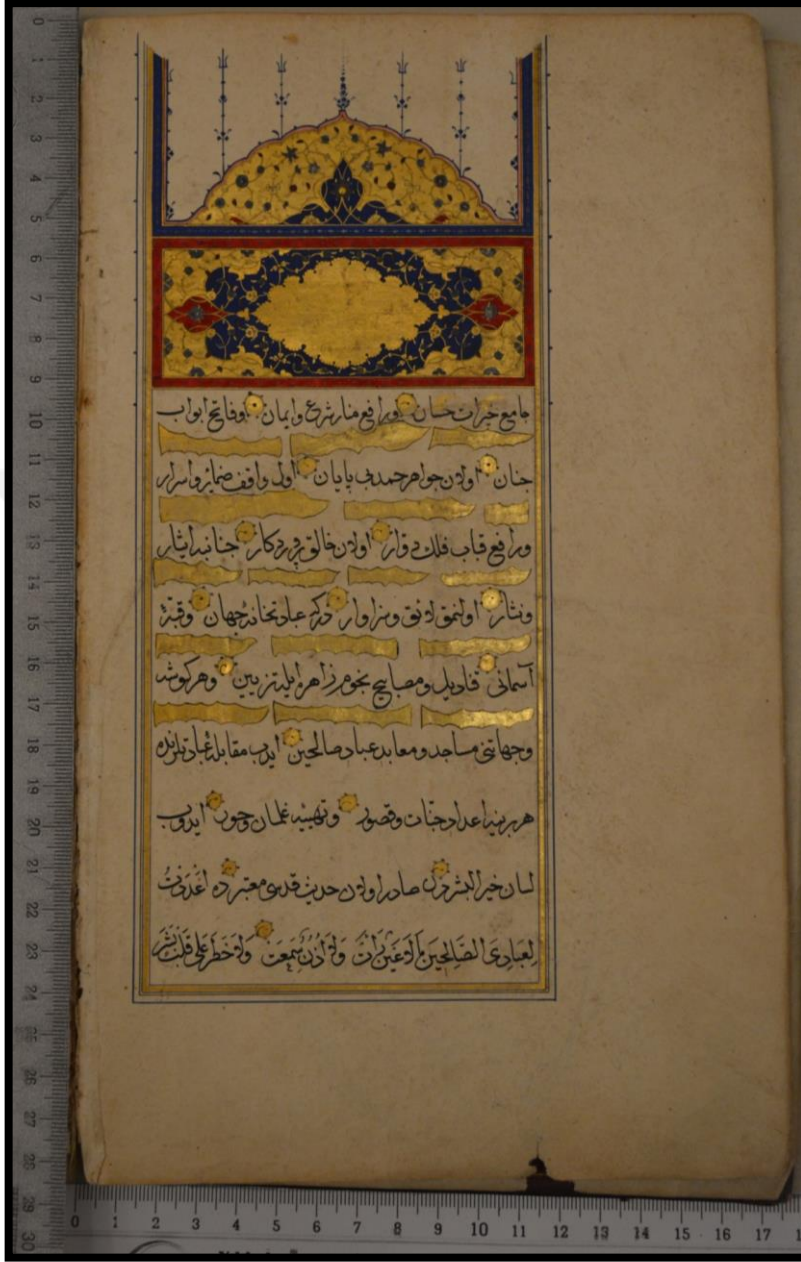 جامع خيرات حسان و رافع منار شرع و ايمان و فاتح ابواب
جنان اولان جواهر حمد بى پايان اول واقف ضماير و اسرار
و رافع قباب فلك دوار اولان خالق پروردكار جنابنه ايثار
و نثار اولنمق لايق و سزاوار دركه عبادتخانه جهان و قبه
آسمانى قناديل و مصابيح نجوم زاهره ايله تزيين و هر كوشه
و جهاتنى مساجد و معابد عباد صالحين ايدب مقابله عبادتلرنده
هر برينه اعداد جنات و قصور و تهيئه غلمان و حور ايدوب
لسان خير البشردن صادر اولان حديث قدسى معتبرده اَعْدَدْتُ
لِعِبَادِىَ الصَّالِحِينَ مَا لاَ عَيْنٌ رَاَتْ وَلاَ اُذُنٌ سَمِعَتْ وَلاَ خَطَرَ عَلَى قَلْبِ بَشَرٍ
0 1 2 3 4 5 6 7 8 9 10 11 12 13 14 15 16 17 18 19 20 21 22 23 24 25 26 27 28 29 30
0 1 2 3 4 5 6 7 8 9 10 11 12 13 14 15 16 17